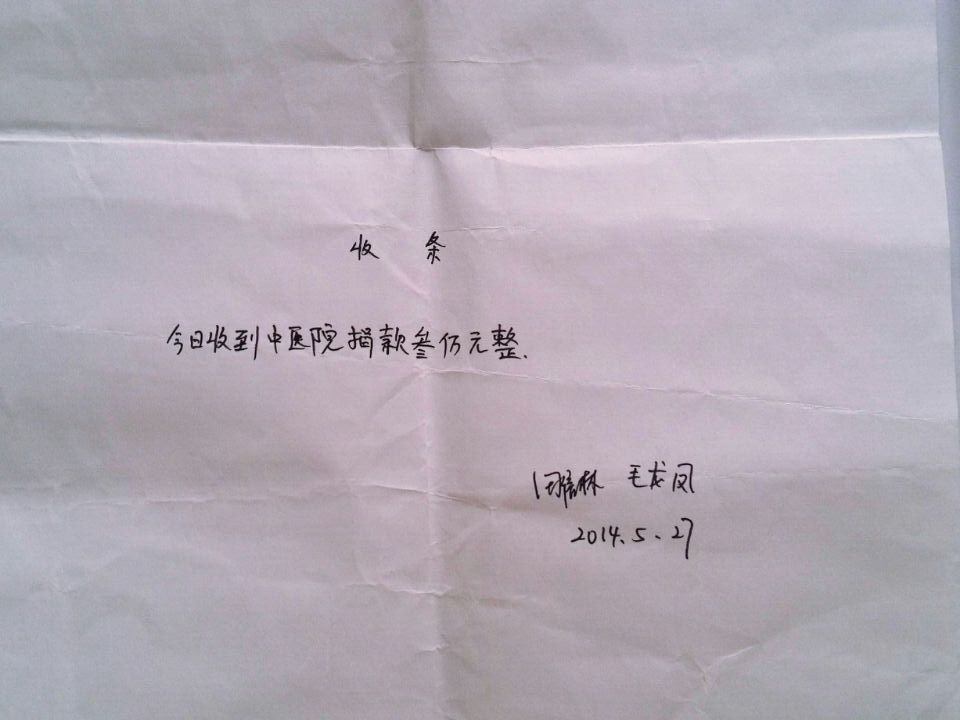 收 条
今日收到中医院捐款叁仟元整.
毛龙凤
2014.5.27